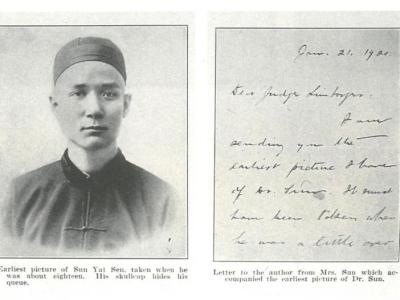 Earliest picture of Sun Yat Sen, taken when he
was about eighteen. His skullcap hides his
queue.
Jan. 21. 1920.
Dear Judge Linebarger.
I am
sending you the
earliest picture I have
of Dr. Sun. It must
have been taken when
he was a little over
Letter to the author from Mrs. Sun which ac-
companied the earliest picture of Dr. Sun.